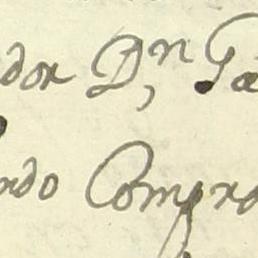 dor Dn,
rdo Compro